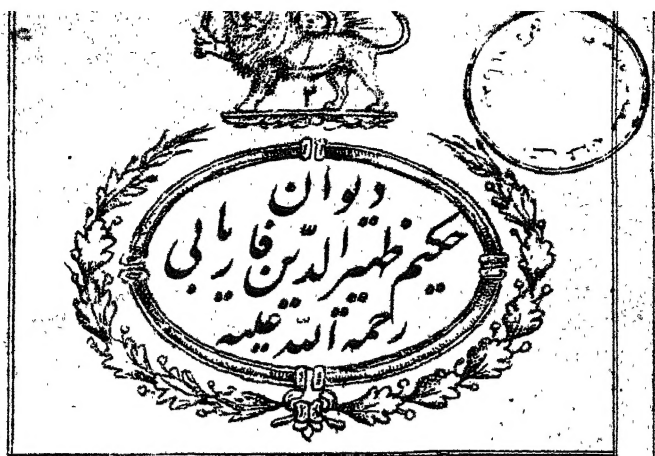 ۲
دیوان
حکیم ظهیر الدّین فاریابی
رحمة اللّه علیه